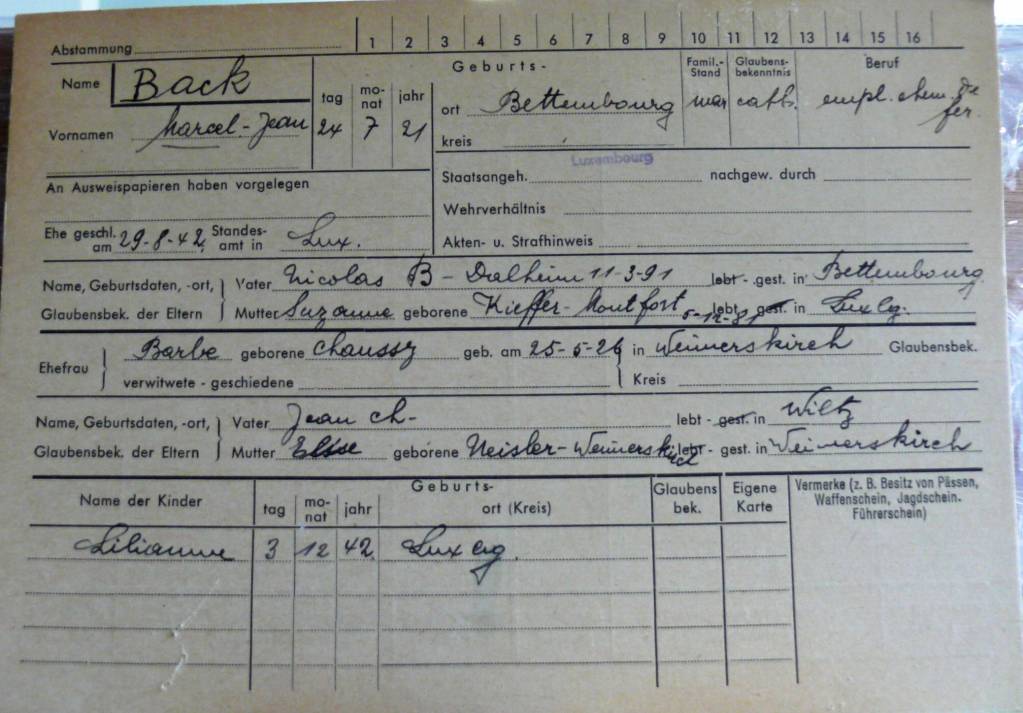 Abstammung 1 2 3 4 5 6 7 8 9 10 11 12 13 14 15 16
Name Back
Geburts-
Famil.-Stand Glaubens-bekenntnis Beruf
tag mo-nat jahr
ort Bettembourg mar cath. empl. chem. de fer.
Vornamen Marcel-Jean 24 7 21
kreis
Luxembourg
An Ausweispapieren haben vorgelegen
Staatsangeh. nachgew. durch
Wehrverhältnis
Ehe geschl. am 29-8-42 Standes-amt in Lux.
Akten- u. Strafhinweis
Name, Geburtsdaten, -ort, Vater Nicolas B - Dalheim 11-3-91 lebt - gest. in Bettembourg
Glaubensbek. der Eltern Mutter Suzanne geborene Kieffer-Montfort lebt - gest. in Luxbg.
Ehefrau Barbe geborene Chaussy geb. am 25-5-26 in Weimerskirch Glaubensbek.
verwitwete - geschiedene Kreis
Name, Geburtsdaten, -ort, Vater Jean Ch- lebt - gest. in Wiltz
Glaubensbek. der Eltern Mutter Elsse geborene Neisler-Weimerskirch lebt - gest. in Weimerskirch
Name der Kinder
Geburts-
tag mo-nat jahr ort (Kreis)
Glaubens bek. Eigene Karte
Vermerke (z. B. Besitz von Pässen,
Waffenschein, Jagdschein.
Führerschein)
Lilianne 3 12 42 Luxbg.